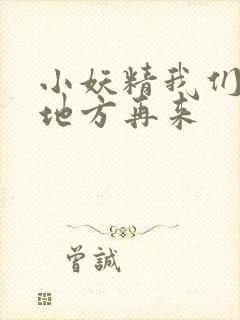 小妖精我们
地方再来
曾誠